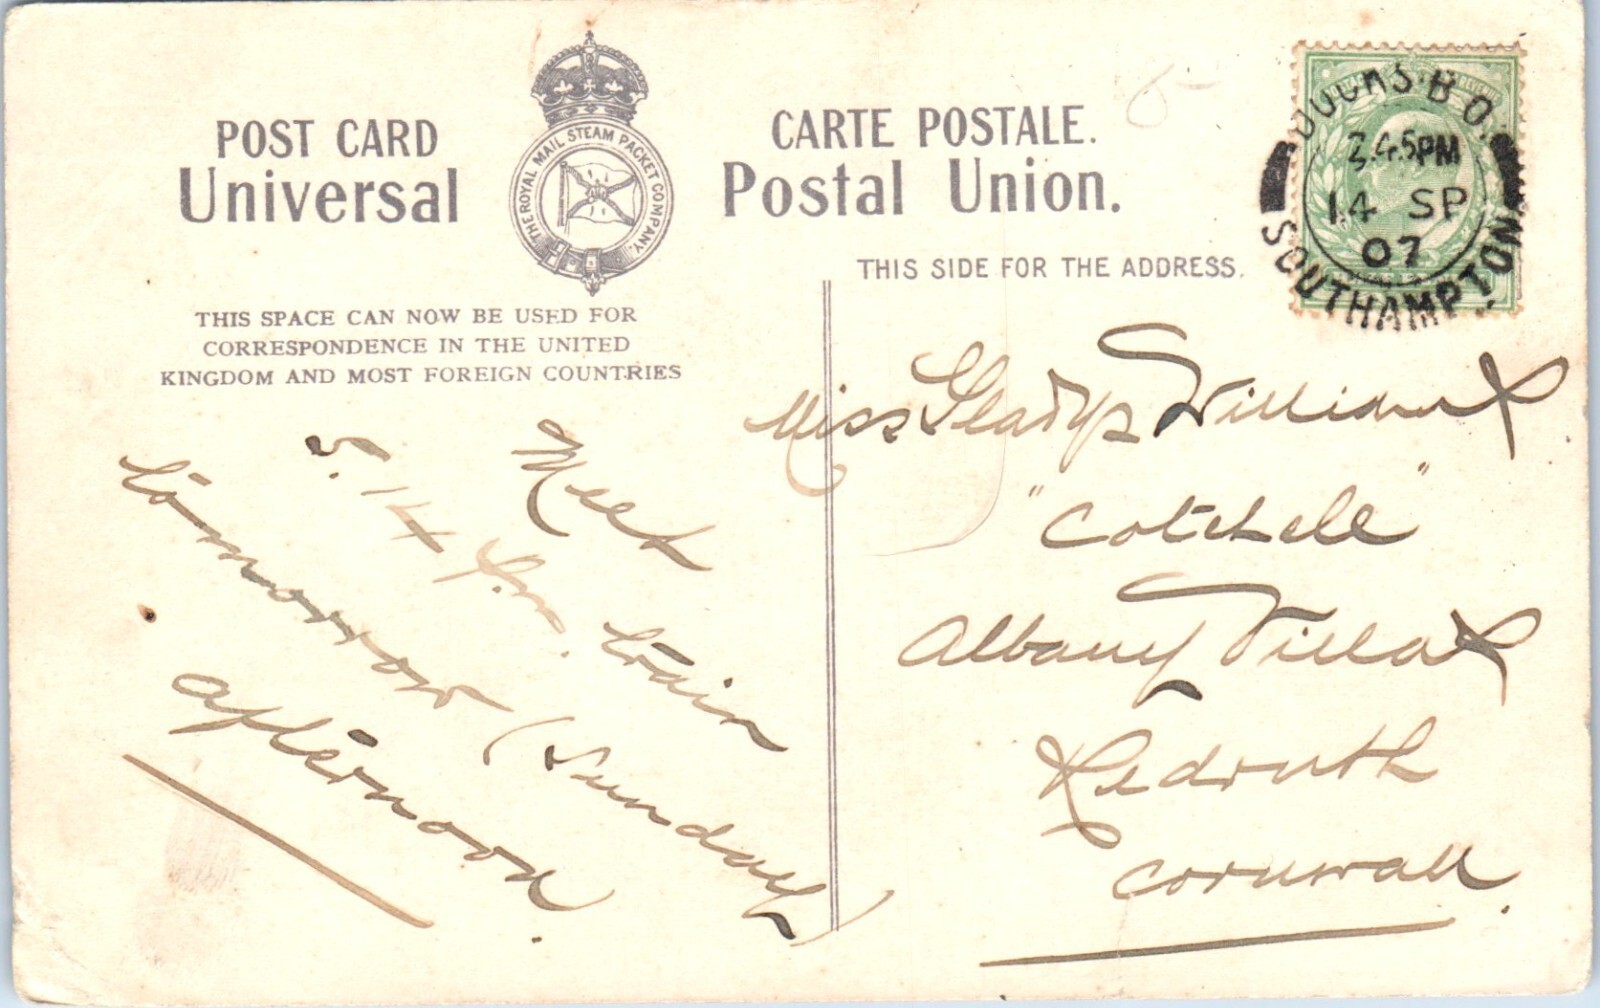 POST CARD
Universal
THE ROYAL MAIL STEAM PACKET COMPANY.
CARTE POSTALE.
Postal Union.
THIS SIDE FOR THE ADDRESS.
THIS SPACE CAN NOW BE USED FOR
CORRESPONDENCE IN THE UNITED
KINGDOM AND MOST FOREIGN COUNTRIES
DOCKS·B.O.
3.45PM
14 SP
07
SOUTHAMPTON
Meet
5.14 p.m. train
tomorrow (Sunday)
afternoon.
Miss Gladys Williams
"Cotehele"
Albany Villas
Redruth
Cornwall.